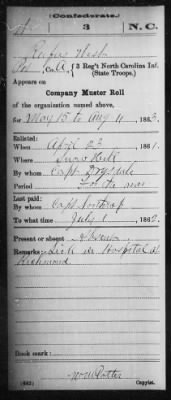 (Confederate.)
3
N. C.
Rufus West
Pvt, Co. A, 3 Reg't North Carolina Inf.
(State Troops.)
Appears on
Company Muster Roll
of the organization named above,
for May 15 to Aug 11, 186
Enlisted:
When April 23, 1861.
Where Snow Hill
By whom Capt Drysdale
Period For the war
Last paid:
By whom Capt
To what time July 1, 186
Present or absent Absent
Remarks: Sick in Hospital at
Richmond
Book mark:
(642)
Copyist.